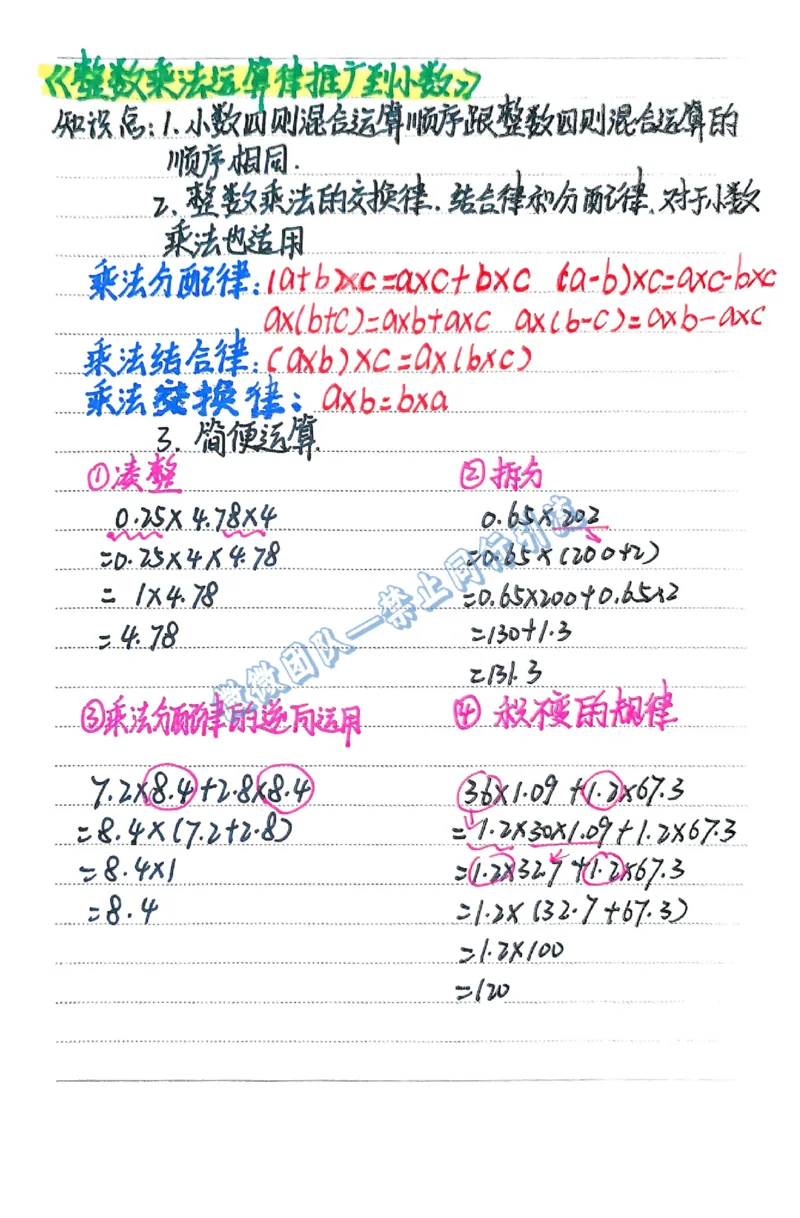 《整数乘法运算律推广到小数》
知识点:1.小数四则混合运算顺序跟整数四则混合运算的
顺序相同.
2、整数乘法的交换律.结合律和分配律,对于小数
乘法也适用
乘法分配律:(a+b)×c=a×c+b×c (a-b)×c=a×c-b×c
a×(b+c)=a×b+a×c a×(b-c)=a×b-a×c
乘法结合律:(a×b)×c=a×(b×c)
乘法交换律:a×b=b×a
3、简便运算.
①凑整
0.25×4.78×4
=0.25×4×4.78
=1×4.78
=4.78
②拆分
0.65×202
=0.65×(200+2)
=0.65×200+0.65×2
=130+1.3
=131.3
③乘法分配律的逆向运用
7.2×8.4+2.8×8.4
=8.4×(7.2+2.8)
=8.4×1
=8.4
④积不变的规律
36×1.09+1.2×67.3
=1.2×30×1.09+1.2×67.3
=1.2×32.7+1.2×67.3
=1.2×(32.7+67.3)
=1.2×100
=120
微团队一禁止同行引流